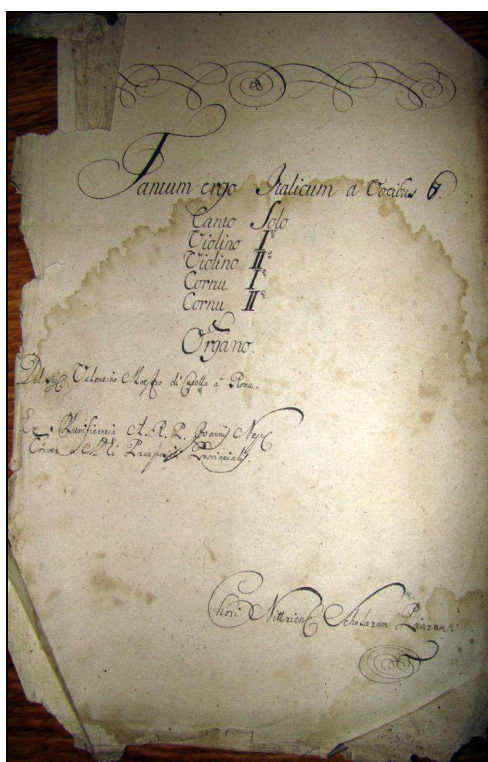 Tantum ergo Italicum a Vocibus 6.
Canto Solo
Violino I
Violino II
Cornu I
Cornu II
&
Organo.
Del Sig Valentino Maestro di Capella à Roma.
Ex Munificentia A. R. P. Joannis Nep
Praepositi Provincialis.
Chori Nittriens Scholarum Piarum.